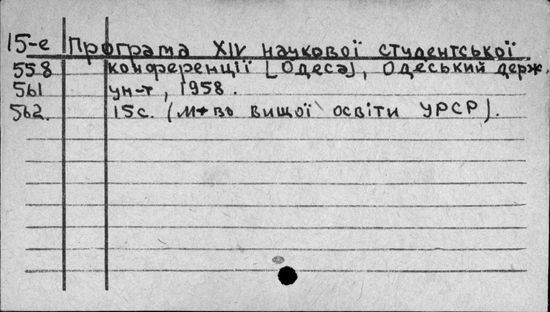 15-е Програма XIV наукової студентської
558 конференції [Одеса], Одеський держ.
561 ун-т, 1958.
562. 15с. (М-во вищої освіти УРСР).